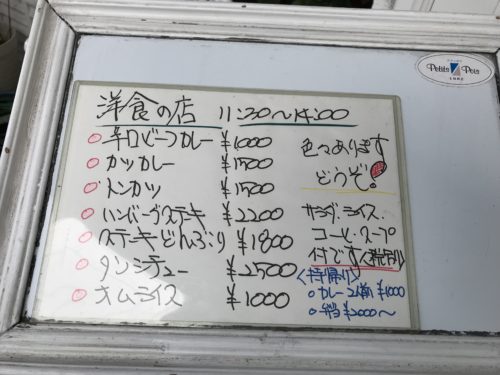 Petits Pois
洋食の店 11:30〜14:00
辛口ビーフカレー ¥1000
カツカレー ¥1500
トンカツ ¥1500
ハンバーグステキ ¥2200
ステーキどんぶり ¥1800
タンシチュー ¥2500
オムライス ¥1000
色々あります
どうぞ!
サラダ・ライス
コーヒ・スープ
付です(税別)
〈持帰り〉
カレー2人前 ¥1000
弁当 ¥2000〜